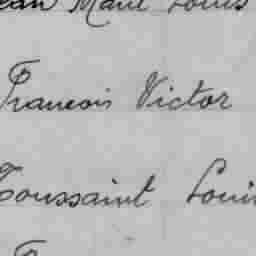 Jean Marie Louis
François Victor
Toussaint Louis